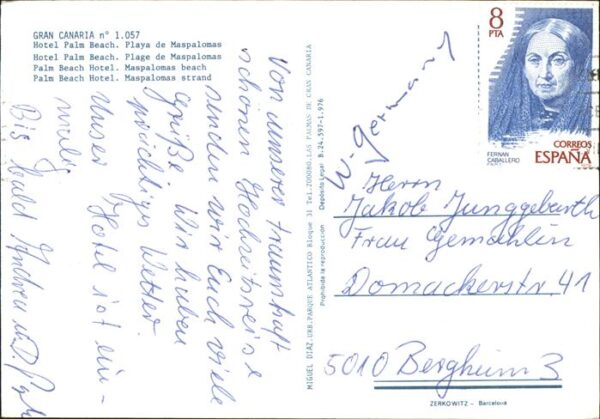 GRAN CANARIA n° 1.057
Hotel Palm Beach. Playa de Maspalomas
Hotel Palm Beach. Plage de Maspalomas
Palm Beach Hotel. Maspalomas beach
Palm Beach Hotel. Maspalomas strand
Von unserer traumhaft
schönen Hochzeitsreise
senden wir Euch viele
Grüße. Wir haben
prächtiges Wetter.
Unser Hotel ist ein-
malig
Bis bald Andrea u. D.
MIGUEL DIAZ.URB.PARQUE ATLANTICO Bloque 31 Tel.200080.LAS PALMAS DE GRAN CANARIA
Prohibida la reproducción Depósito Legal B.24.597-1.976
8
PTA
FERNAN
CABALLERO
CORREOS
ESPAÑA
W. Germany
Herrn
Jakob Junggebarth
Frau Gemahlin
Domackerstr. 41
5010 Bergheim 3
ZERKOWITZ - Barcelona